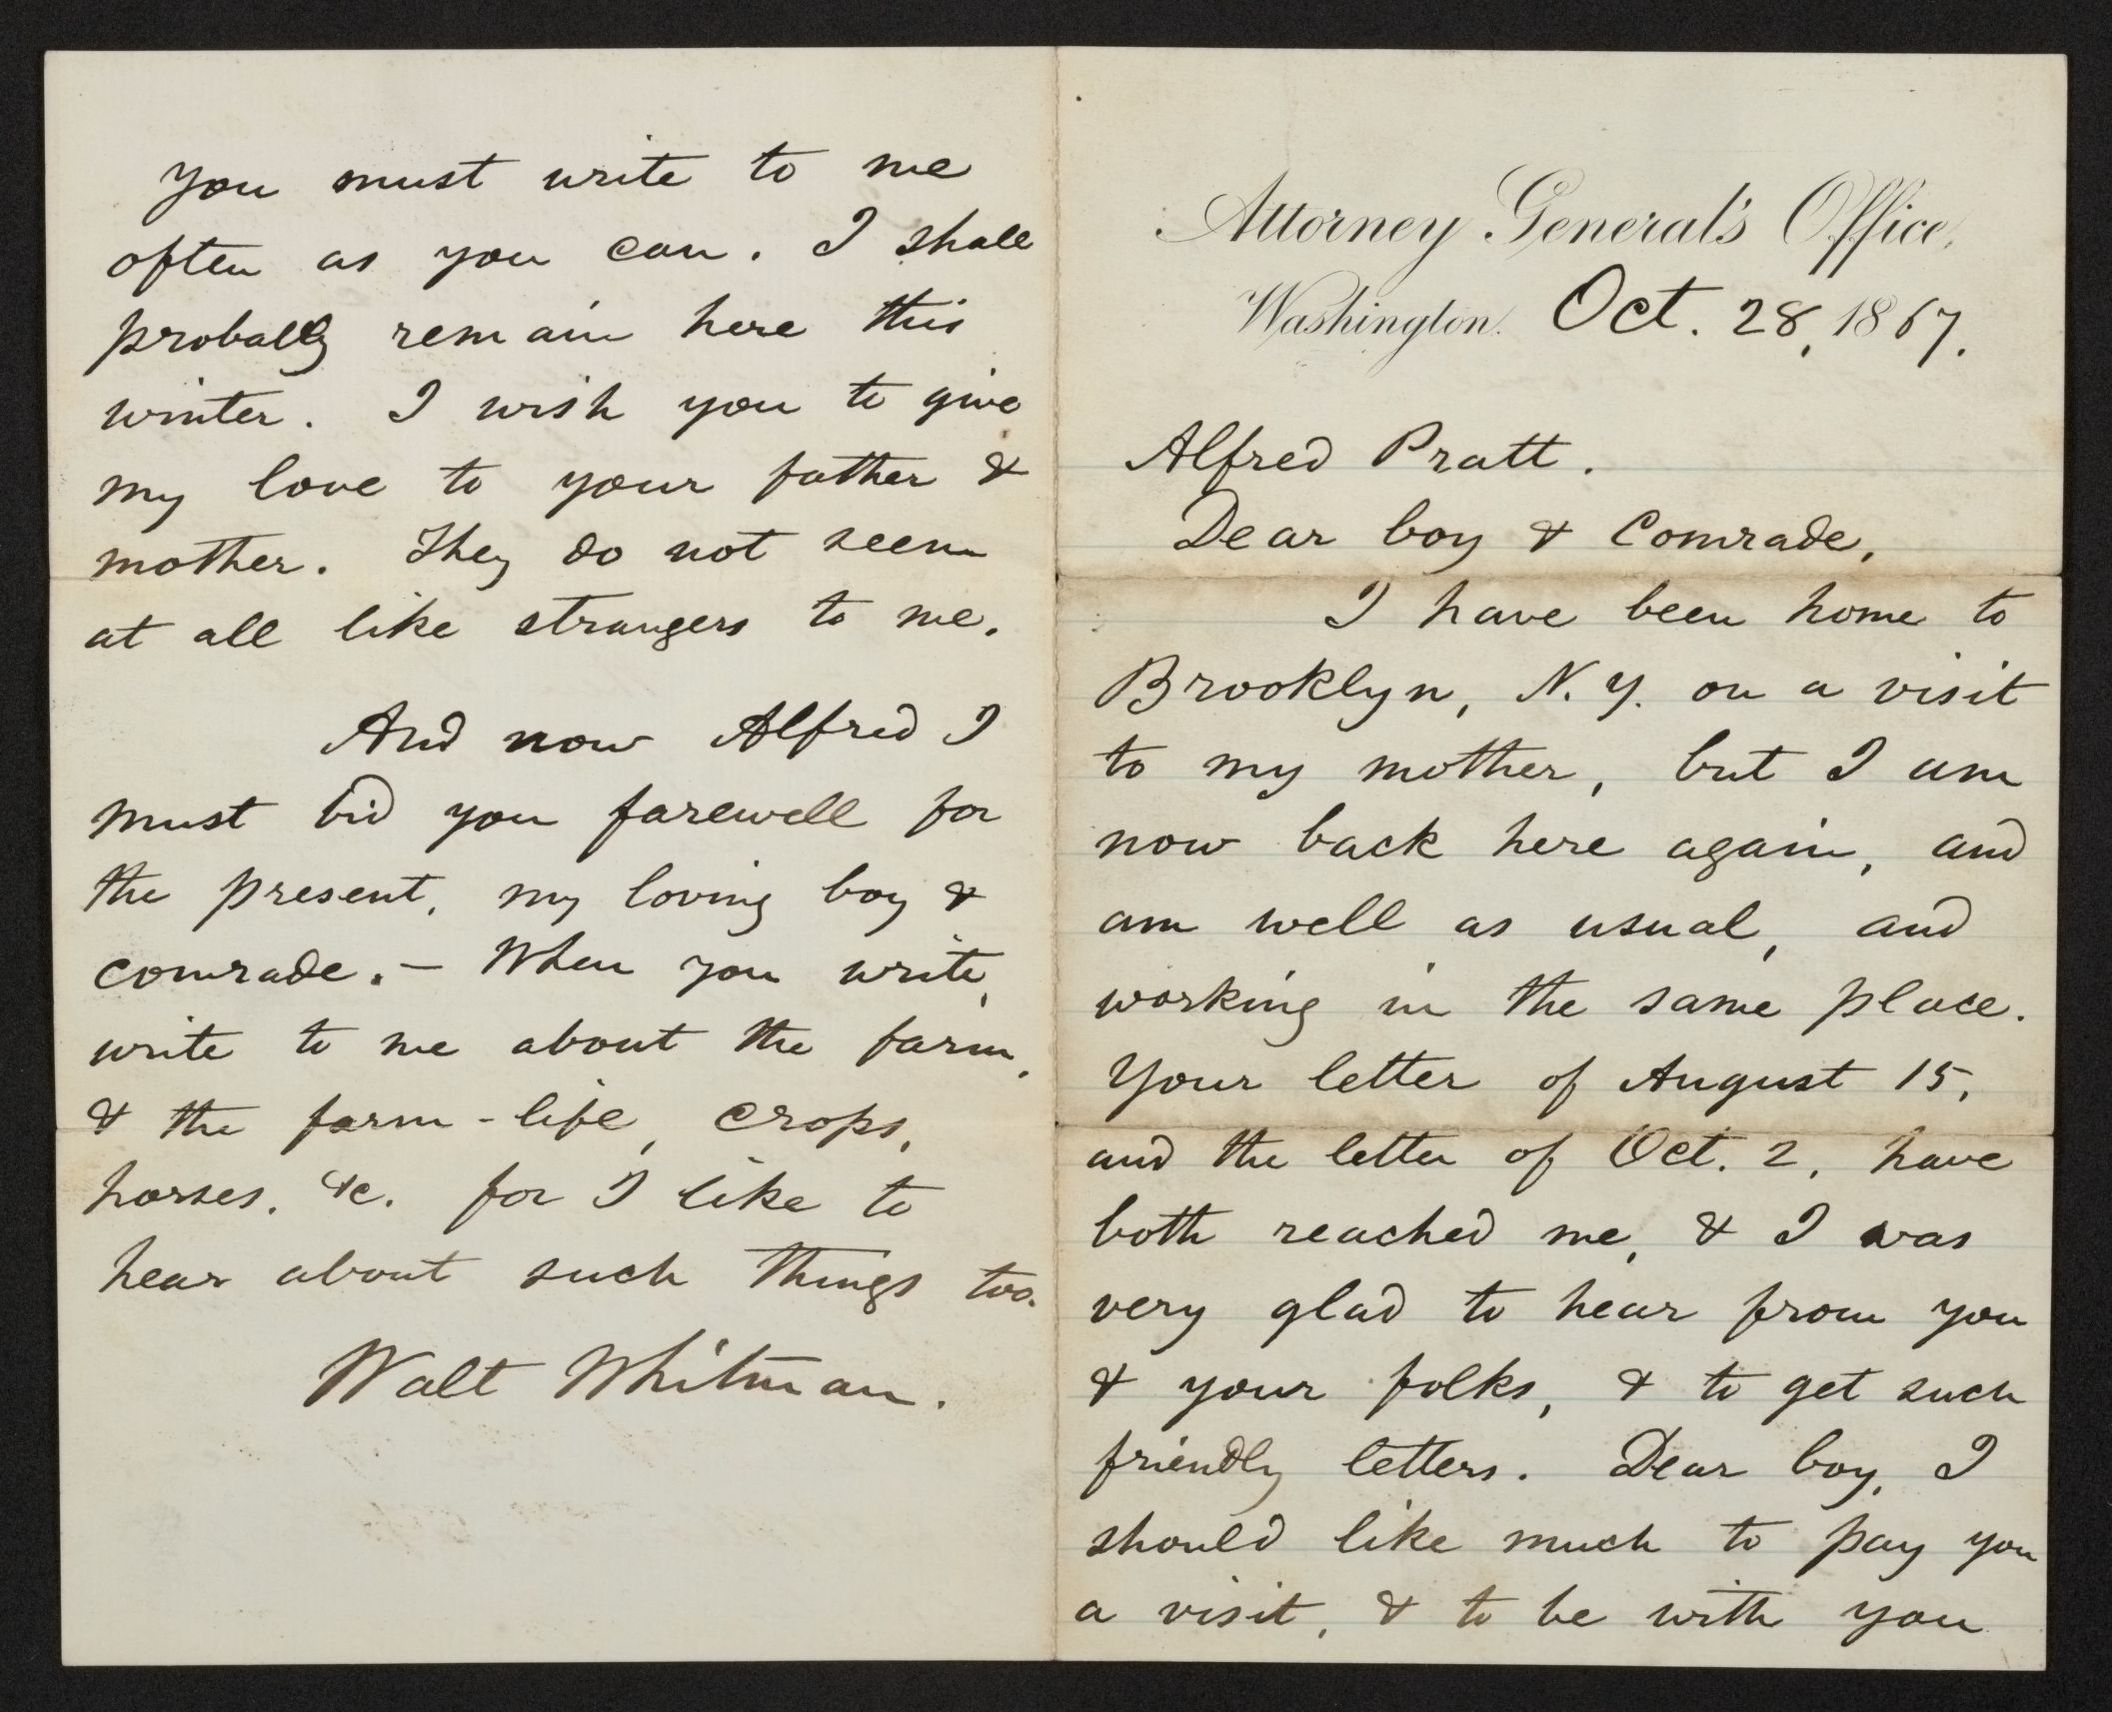 Attorney General's Office,
Washington. Oct. 28, 1867.
Alfred Pratt.
Dear boy & Comrade,
I have been home to
Brooklyn, N. Y. on a visit
to my mother, but I am
now back here again, and
am well as usual, and
working in the same place.
Your letter of August 15,
and the letter of Oct. 2, have
both reached me, & I was
very glad to hear from you
& your folks, & to get such
friendly letters. Dear boy, I
should like much to pay you
a visit, & to be with you
you must write to me
often as you can. I shall
probably remain here this
winter. I wish you to give
my love to your father &
mother. They do not seem
at all like strangers to me.
And now Alfred I
must bid you farewell for
the present, my loving boy &
comrade. — When you write,
write to me about the farm,
& the farm-life, crops,
horses, &c. for I like to
hear about such things too.
Walt Whitman.